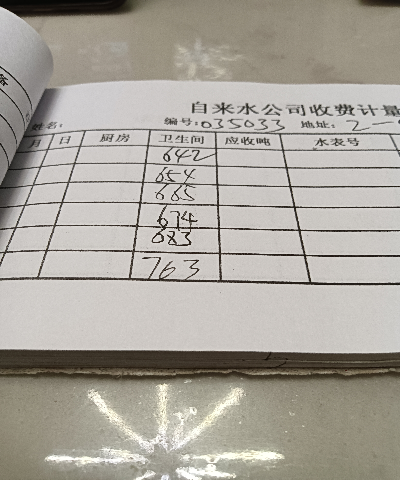 自来水公司收费计量
姓名: 编号:035033 地址: 2-
月 日 厨房 卫生间 应收吨 水表号
642
654
665
674
683
763